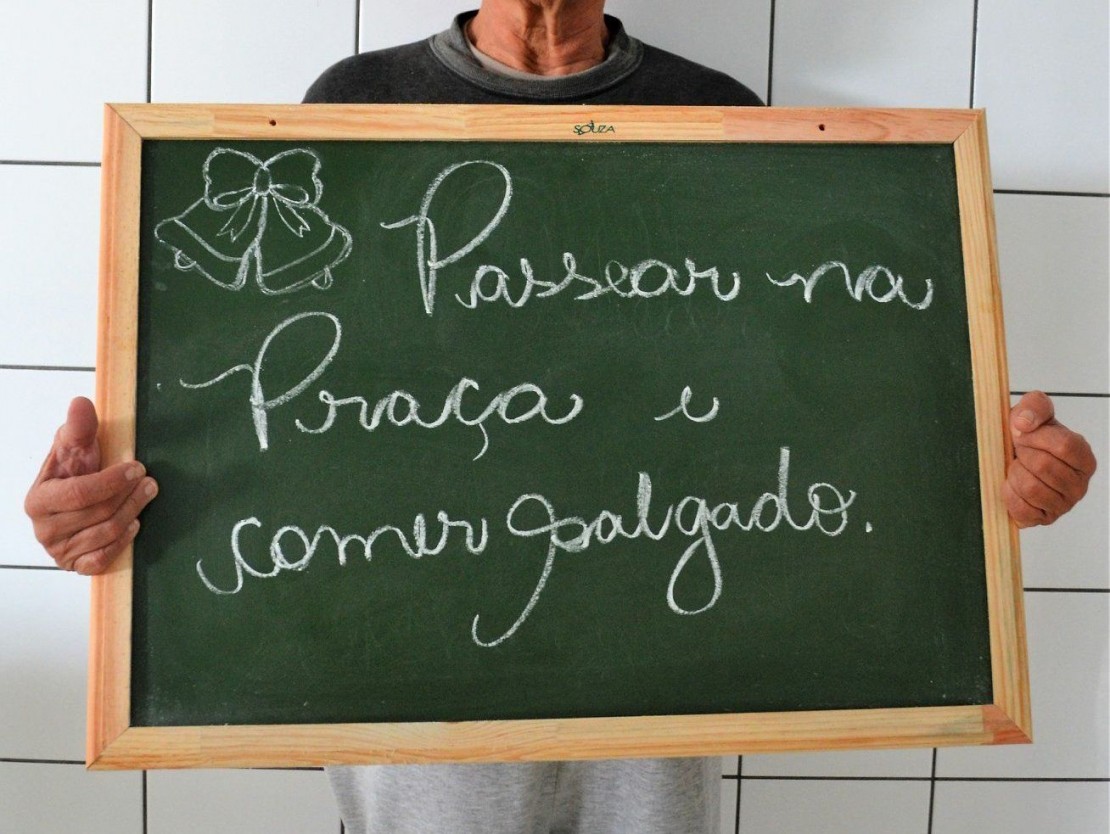 SOUZA
Passear na
Praça e
comer salgado.